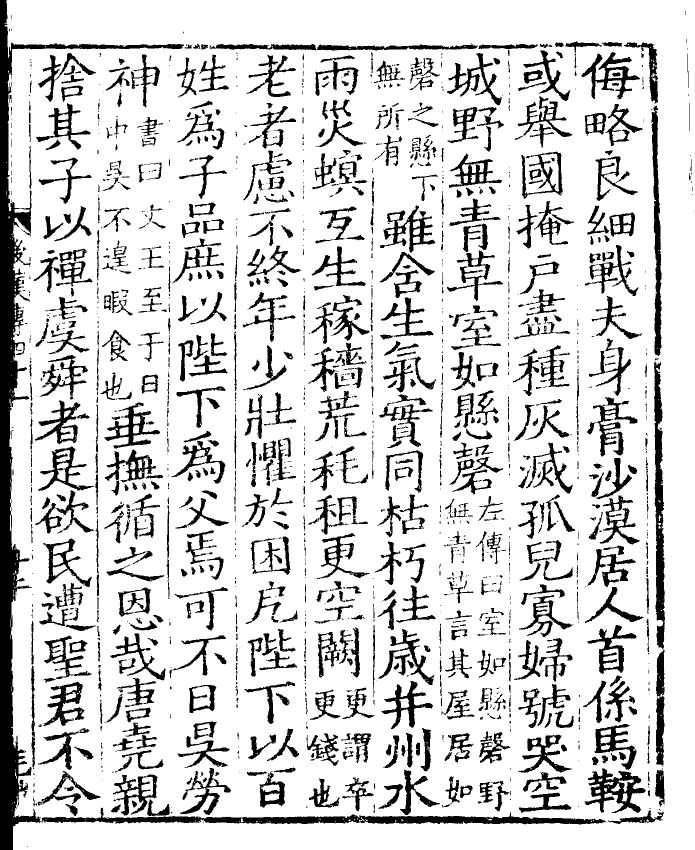 侮略良細戰夫身膏沙漠居人首係馬鞍
或舉國掩戶盡種灰滅孤兒寡婦號哭空
城野無青草室如懸磬左傳曰室如懸磬野無青草言其屋居如
磬之縣下無所有雖含生氣實同枯朽往歲并州水
雨災螟互生稼穡荒耗租更空闕更謂卒更錢也
老者慮不終年少壯懼於困戹陛下以百
姓為子品庶以陛下為父焉可不日昃勞
神書曰文王至于日中昃不遑暇食也垂撫循之恩哉唐堯親
捨其子以禪虞舜者是欲民遭聖君不令
後漢傳四十一